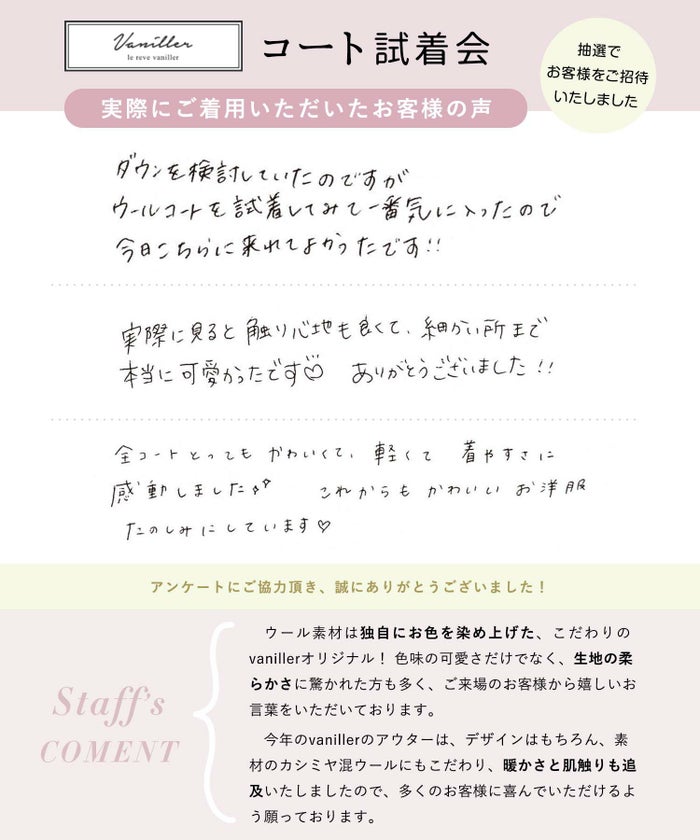 Vaniller
le reve vaniller
コート試着会
抽選で
お客様をご招待
いたしました
実際にご着用いただいたお客様の声
ダウンを検討していたのですが
ウールコートを試着してみて一番気に入ったので
今日こちらに来れてよかったです!!
実際に見ると触り心地も良くて、細かい所まで
本当に可愛かったです♡ ありがとうございました!!
全コートとっても かわいくて、軽くて 着やすさに
感動しました✧✧ これからも かわいい お洋服
たのしみにしています♡
アンケートにご協力頂き、誠にありがとうございました！
Staff's
COMENT
ウール素材は独自にお色を染め上げた、こだわりの
vanillerオリジナル！ 色味の可愛さだけでなく、生地の柔
らかさに驚かれた方も多く、ご来場のお客様から嬉しいお
言葉をいただいております。
今年のvanillerのアウターは、デザインはもちろん、素
材のカシミヤ混ウールにもこだわり、暖かさと肌触りも追
及いたしましたので、多くのお客様に喜んでいただけるよ
う願っております。